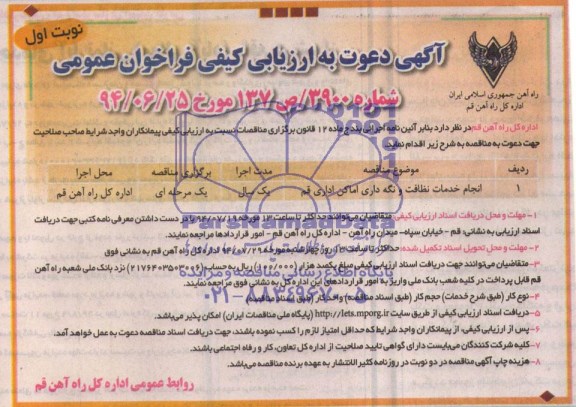 نوبت اول
آگهی دعوت به ارزیابی کیفی فراخوان عمومی
شماره ۳۹۰۰/ص/۱۳۷ مورخ ۹۴/۰۶/۲۵
راه آهن جمهوری اسلامی ایران
اداره کل راه آهن قم
اداره کل راه آهن قم در نظر دارد بنابر آئین نامه اجرائی بند ج ماده ۱۲ قانون برگزاری مناقصات نسبت به ارزیابی کیفی پیمانکاران واجد شرایط صاحب صلاحیت
جهت دعوت به مناقصه به شرح زیر اقدام نماید.
ردیف موضوع مناقصه مدت اجرا برگزاری مناقصه محل اجرا
۱ انجام خدمات نظافت و نگه داری اماکن اداری قم یک سال یک مرحله ای اداره کل راه آهن قم
۱- مهلت و محل دریافت اسناد ارزیابی کیفی: متقاضیان می‌توانند حداکثر تا ساعت ۱۳ مورخ ۹۴/۰۷/۱۹ با در دست داشتن معرفی نامه کتبی جهت دریافت
اسناد ارزیابی به نشانی: قم - خیابان سپاه - میدان راه آهن - اداره کل راه آهن قم - امور قراردادها مراجعه نمایند.
۲- مهلت و محل تحویل اسناد تکمیل شده: حداکثر تا ساعت ۱۳ روز چهارشنبه مورخ ۹۴/۰۷/۲۹ اداره کل راه آهن قم به نشانی فوق
۳- متقاضیان می‌توانند جهت دریافت اسناد ارزیابی کیفی مبلغ یکصد هزار (۱۰۰/۰۰۰) ریال به حساب نزد بانک ملی شعبه راه آهن
قم قابل پرداخت در کلیه شعب بانک ملی واریز و به امور قراردادهای این اداره کل به نشانی فوق مراجعه نمایند.
۴- نوع کار (طبق شرح خدمات) حجم کار (طبق اسناد مناقصه) واحد کار (طبق اسناد مناقصه)
۵- دریافت اسناد ارزیابی کیفی از طریق سایت http://iets.mporg.ir (پایگاه ملی مناقصات ایران) امکان پذیر می‌باشد.
۶- پس از ارزیابی کیفی، از پیمانکاران واجد شرایط که حداقل امتیاز لازم را کسب نموده باشند، جهت دریافت اسناد مناقصه دعوت به عمل خواهد آمد.
۷- کلیه شرکت کنندگان می‌بایست دارای گواهی تایید صلاحیت از اداره کل تعاون، کار و رفاه اجتماعی باشند.
۸- هزینه چاپ آگهی مناقصه در دو نوبت در روزنامه کثیر الانتشار به عهده برنده مناقصه می‌باشد.
روابط عمومی اداره کل راه آهن قم
پایگاه اطلاع رسانی مناقصه و مزایده
۰۲۱-۸۸۳۴۹۶۷۰-۵